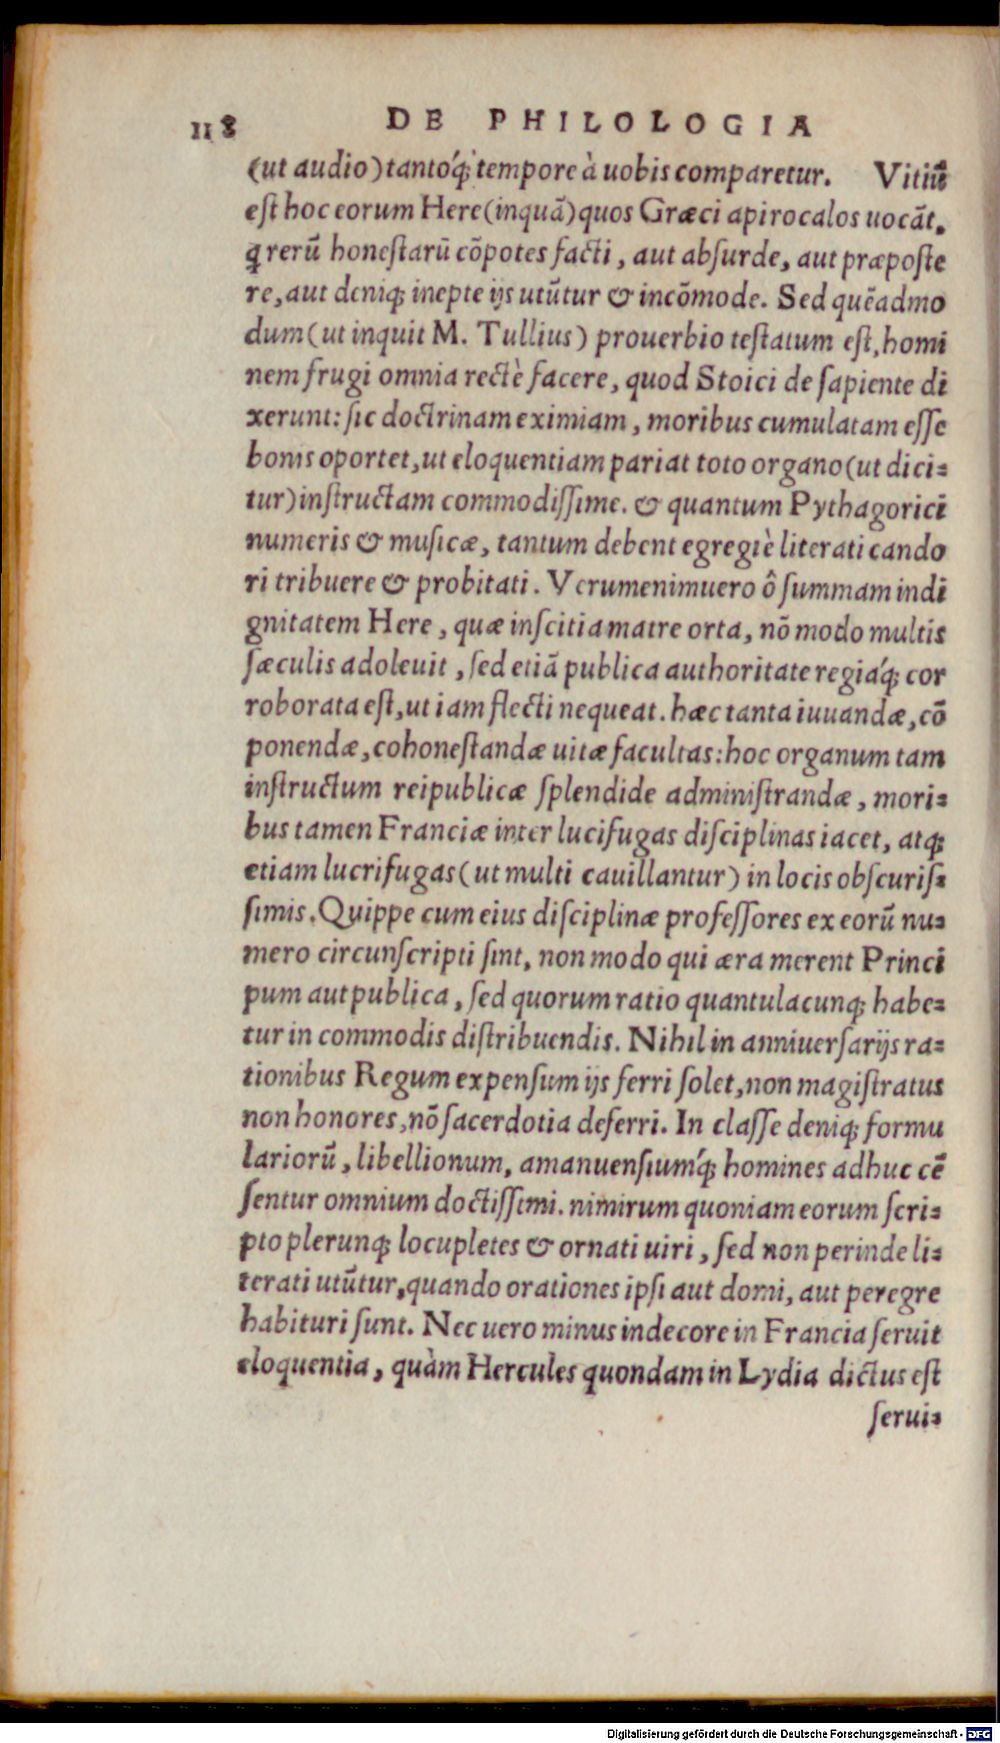 118 DE PHILOLOGIA
(ut audio) tantoq́; tempore à uobis comparetur. Vitiũ
est hoc eorum Here (inquã) quos Græci apirocalos uocãt,
q rerũ honestarũ cõpotes facti, aut absurde, aut præposte
re, aut deniq; inepte ijs utũtur & incõmode. Sed quẽadmo
dum (ut inquit M. Tullius) prouerbio testatum est, homi
nem frugi omnia rectè facere, quod Stoici de sapiente di
xerunt: sic doctrinam eximiam, moribus cumulatam esse
bonis oportet, ut eloquentiam pariat toto organo (ut dici=
tur) instructam commodissime. & quantum Pythagorici
numeris & musicæ, tantum debent egregiè literati cando
ri tribuere & probitati. Verumenimuero ô summam indi
gnitatem Here, quæ inscitia matre orta, nõ modo multis
sæculis adoleuit, sed etiã publica authoritate regiáq; cor
roborata est, ut iam flecti nequeat. hæc tanta iuuandæ, cõ
ponendæ, cohonestandæ uitæ facultas: hoc organum tam
instructum reipublicæ splendide administrandæ, mori=
bus tamen Franciæ inter lucifugas disciplinas iacet, atq;
etiam lucrifugas (ut multi cauillantur) in locis obscuris=
simis. Quippe cum eius disciplinæ professores ex eorũ nu=
mero circunscripti sint, non modo qui æra merent Princi
pum aut publica, sed quorum ratio quantulacunq; habe=
tur in commodis distribuendis. Nihil in anniuersarijs ra=
tionibus Regum expensum ijs ferri solet, non magistratus
non honores, nõ sacerdotia deferri. In classe deniq; formu
lariorũ, libellionum, amanuensiumq́; homines adhuc cẽ
sentur omnium doctissimi. nimirum quoniam eorum scri=
pto plerunq; locupletes & ornati uiri, sed non perinde li=
terati utũtur, quando orationes ipsi aut domi, aut peregre
habituri sunt. Nec uero minus indecore in Francia seruit
eloquentia, quàm Hercules quondam in Lydia dictus est
serui=
Digitalisierung gefördert durch die Deutsche Forschungsgemeinschaft - DFG